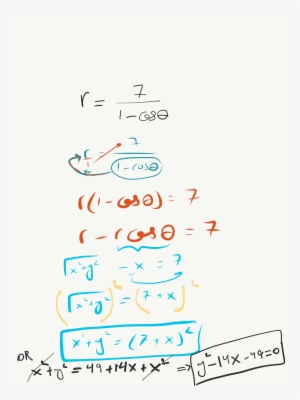 r = 7 / 1-cosθ
r/1 = 7 / 1-cosθ
r(1-cosθ) = 7
r - r cosθ = 7
√x²+y² - x = 7
(√x²+y²)² = (7+x)²
x²+y² = (7+x)²
OR x²+y² = 49+14x+x² => y²-14x-49=0